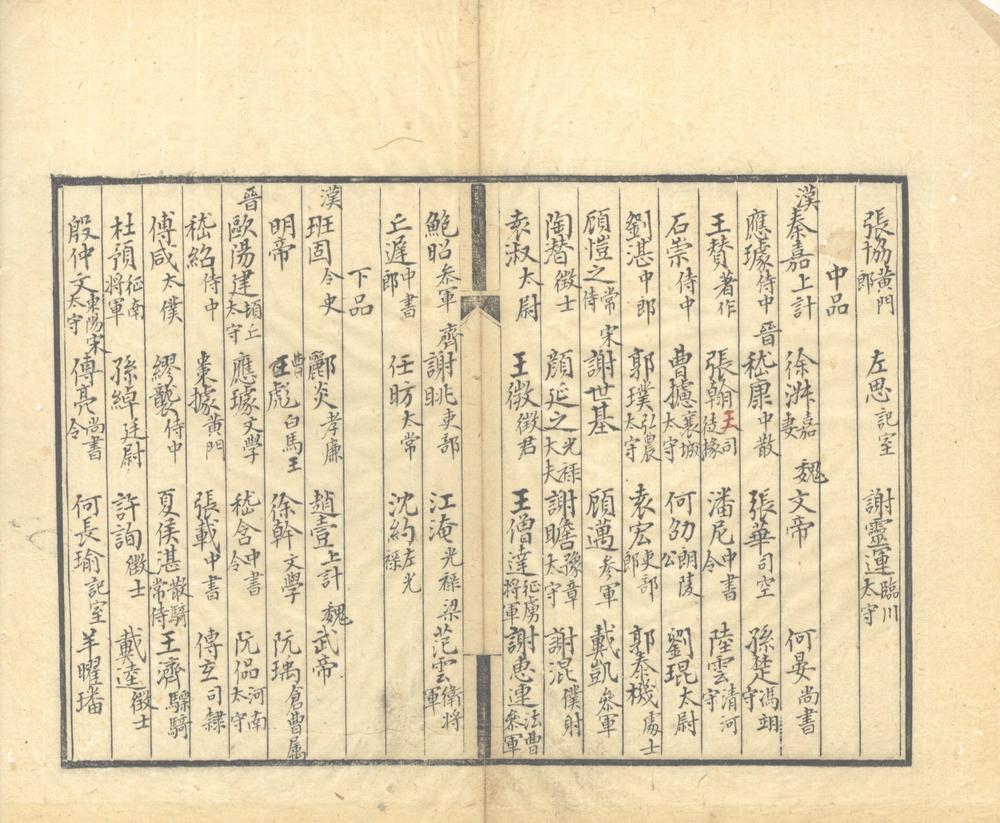 張協黃門郎 左思記室 謝靈運臨川太守
中品
漢秦嘉上計 徐淑嘉妻 魏文帝 何晏尚書
應璩侍中 晉嵇康中散 張華司空 孫楚馮翊守
王賛著作 張翰王司徒掾 潘尼中書令 陸雲清河守
石崇侍中 曹攄襄城太守 何劭朗陵公 劉琨太尉
劉湛中郎 郭璞弘農太守 袁宏吏部郎 郭泰機處士
顧愷之常侍 宋謝世基 顧邁参軍 戴凱叅軍
陶朁徵士 顔延之光禄大夫 謝瞻豫章太守 謝混僕射
袁淑太尉 王微徵君 王僧達征虜將軍 謝惠連法曹叅軍
鮑昭叅軍 齊謝朓吏部 江淹光禄 梁范雲衛將軍
丘遲中書郎 任昉太常 沈約左光禄
下品
漢班固令史 酈炎孝廉 趙壹上計 魏武帝
明帝 曹彪白馬王 徐幹文學 阮瑀倉曹属
晉歐陽建頓丘太守 應璩文學 嵇含中書令 阮偘河南太守
嵇紹侍中 棗據黃門 張載中書 傅玄司隸
傅咸太僕 繆襲侍中 夏侯湛散騎常侍 王濟驃騎
杜預征南將軍 孫綽廷尉 許詢徵士 戴逵徵士
殷仲文東陽太守 宋傅亮尚書令 何長瑜記室 羊曜璠